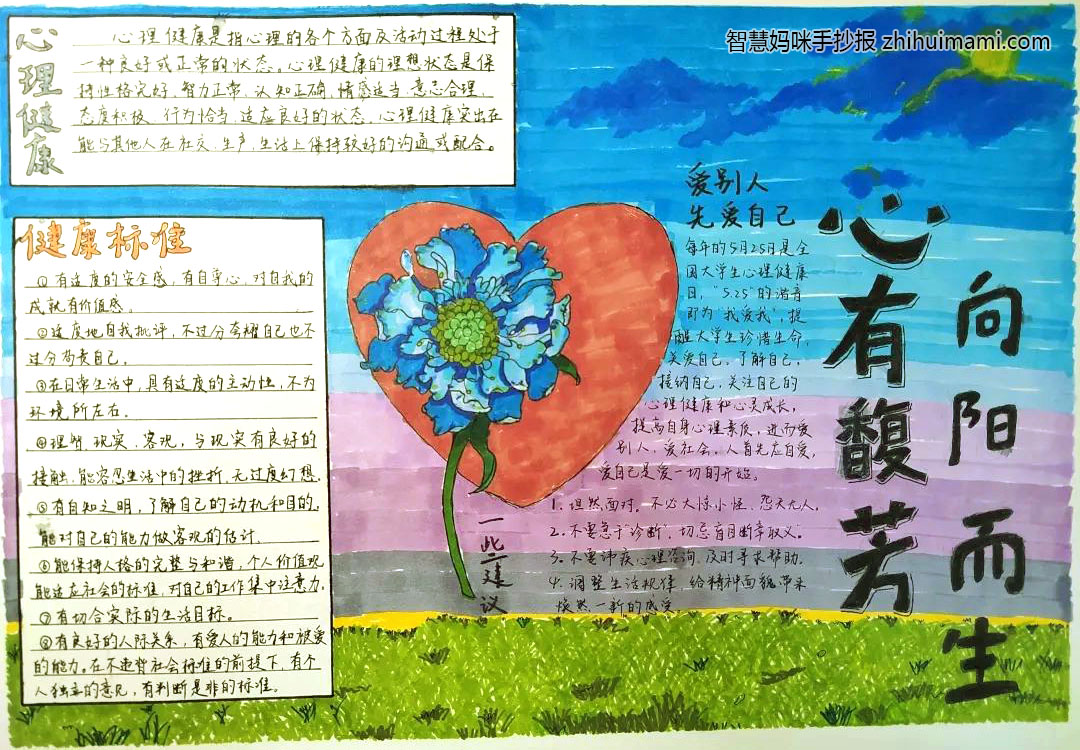 智慧妈咪手抄报 zhihuimami.com
心理健康
心理健康是指心理的各个方面及活动过程处于
一种良好或正常的状态。心理健康的理想状态是保
持性格完好、智力正常、认知正确、情感适当、意志合理、
态度积极、行为恰当、适应良好的状态。心理健康突出在
能与其他人在社交、生产、生活上保持较好的沟通或配合。
健康标准
①有适度的安全感,有自尊心,对自我的
成就有价值感。
②适度地自我批评,不过分夸耀自己也不
过分苛责自己。
③在日常生活中,具有适度的主动性,不为
环境所左右。
④理智,现实,客观,与现实有良好的
接触,能容忍生活中的挫折,无过度幻想。
⑤有自知之明,了解自己的动机和目的,
能对自己的能力做客观的估计.
⑥能保持人格的完整与和谐,个人价值观
能适应社会的标准,对自己的工作集中注意力.
⑦有切合实际的生活目标。
⑧有良好的人际关系,有爱人的能力和被爱
的能力。在不违背社会标准的前提下,有个
人独立的意见,有判断是非的标准。
爱别人
先爱自己
每年的5月25日是全
国大学生心理健康
日,"5.25"的谐音
即为"我爱我",提
醒大学生珍惜生命,
关爱自己,了解自己,
接纳自己,关注自己的
心理健康和心灵成长,
提高自身心理素质,进而爱
别人,爱社会,人首先应自爱,
爱自己是爱一切的开始。
一些建议
1.坦然面对,不必大惊小怪,怨天尤人。
2.不要急于"诊断",切忌盲目断章取义。
3.不要讳疾心理咨询,及时寻求帮助。
4.调整生活规律,给精神面貌带来
焕然一新的感受
心有馥芳
向阳而生